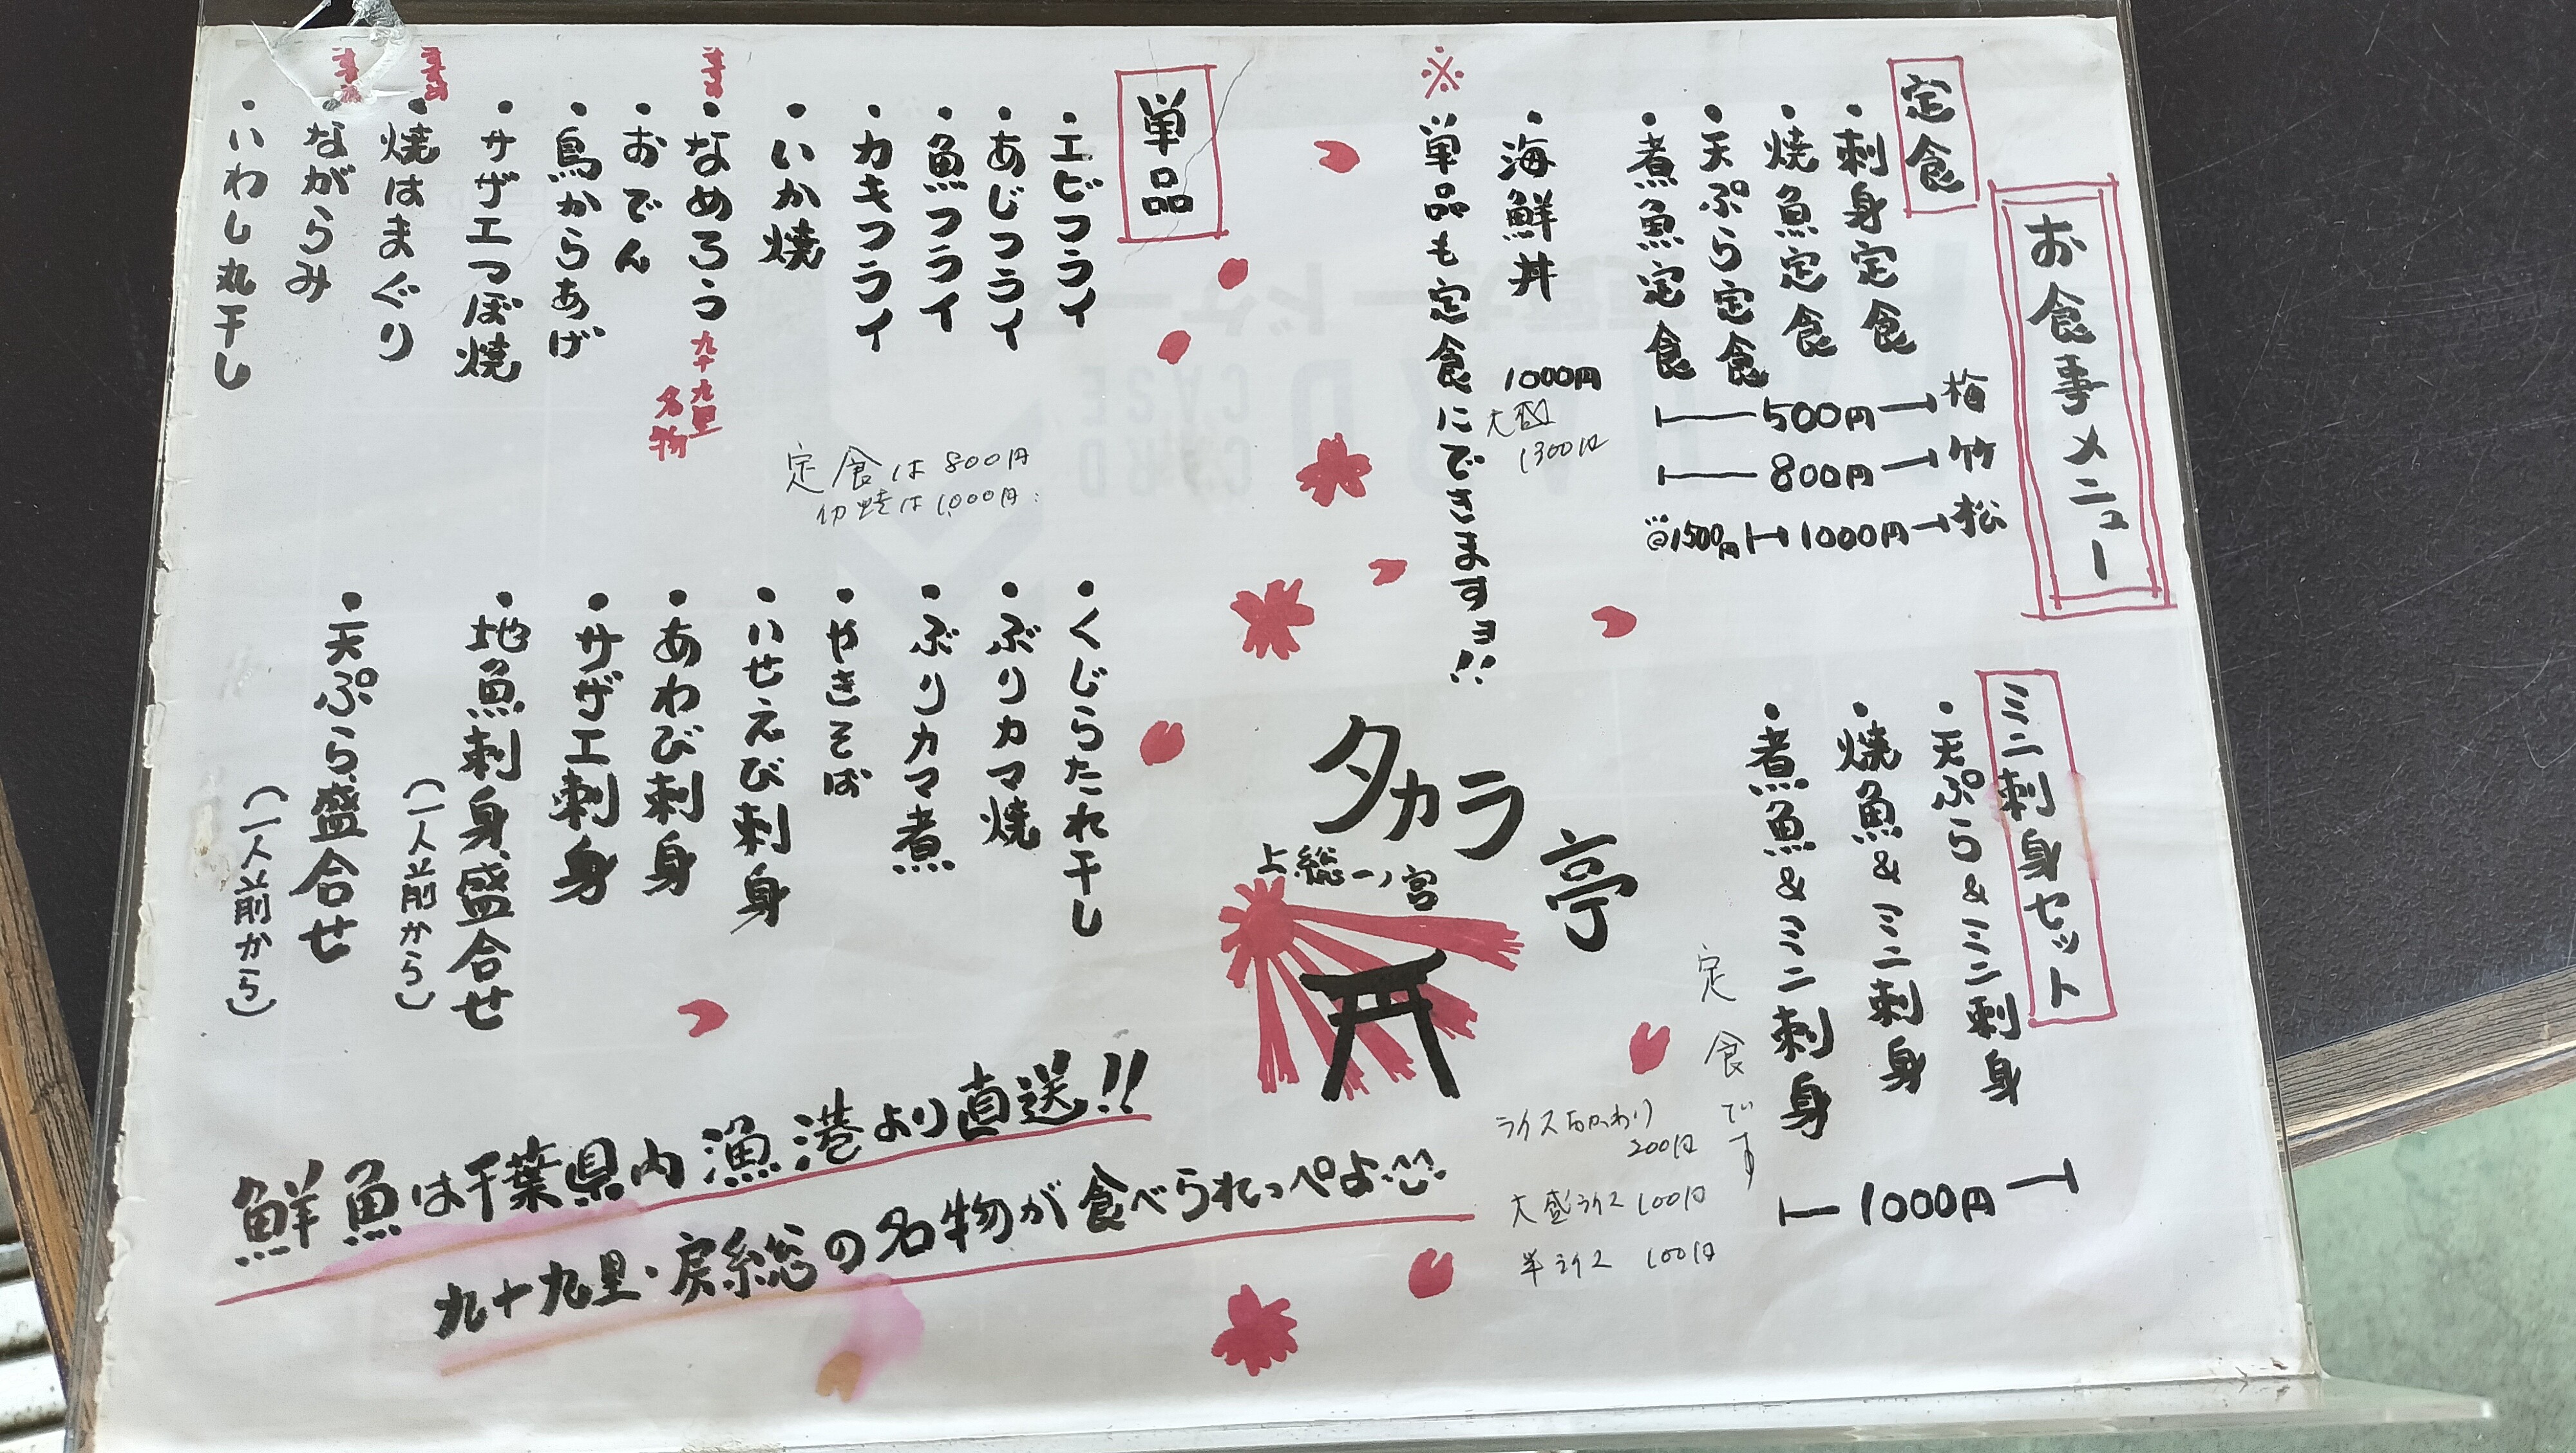 お食事メニュー
定食
・刺身定食
・焼魚定食
・天ぷら定食
・煮魚定食
梅 500円
竹 800円
松 1000円 1500円
・海鮮丼 1000円
大盛 1300円
※単品も定食にできますヨ!!
ミニ刺身セット
・天ぷら&ミニ刺身
・焼魚&ミニ刺身
・煮魚&ミニ刺身
1000円
定食です
ライスおかわり
200円
大盛ライス 100円
半ライス 100円
タカラ亭
上総一ノ宮
単品
・エビフライ
・あじフライ
・魚フライ
・カキフライ
・いか焼
・なめろう 九十九里
名物
・おでん
・鳥からあげ
・サザエつぼ焼
・焼はまぐり
・ながらみ
・いわし丸干し
定食は800円
は1,000円
・くじらたれ干し
・ぶりカマ焼
・ぶりカマ煮
・やきそば
・いせえび刺身
・あわび刺身
・サザエ刺身
・地魚刺身盛合せ
(一人前から)
・天ぷら盛合せ
(一人前から)
鮮魚は千葉県内漁港より直送!!
九十九里・房総の名物が食べられっぺよ